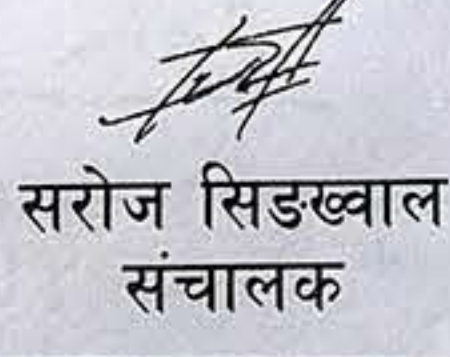 सरोज सिङख्वाल
संचालक